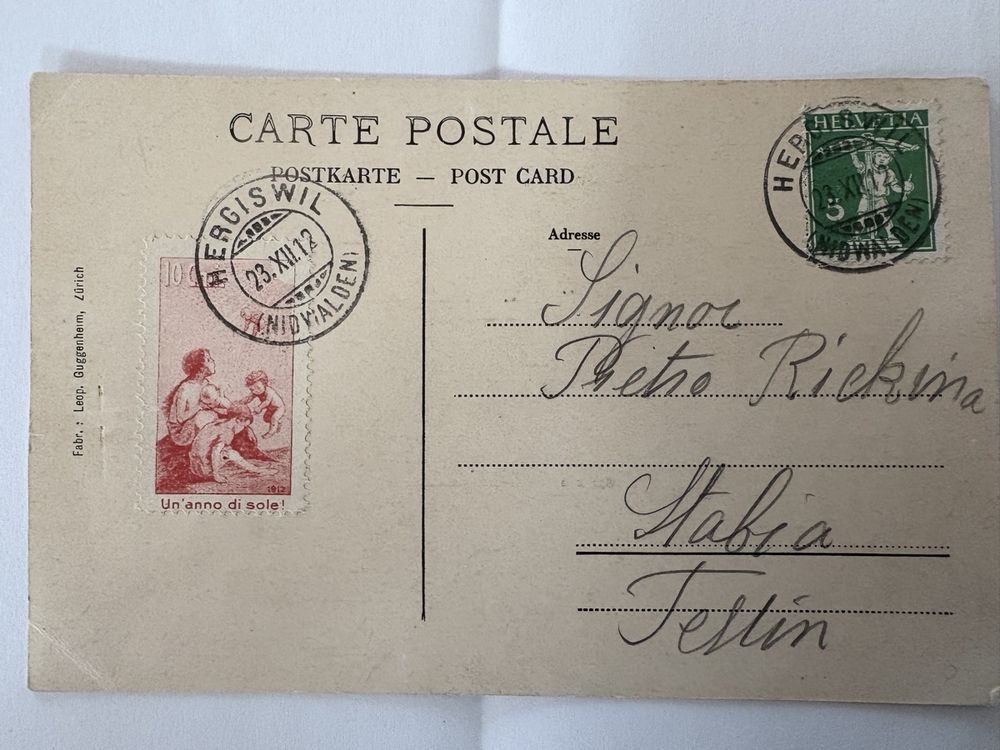 CARTE POSTALE
POSTKARTE — POST CARD
HERGISWIL
23.XII.12
(NIDWALDEN)
10
Un'anno di sole!
1912
Fabr.: Leop. Guggenheim, Zürich
HELVETIA
5
HERGISWIL
23.XII.12
(NIDWALDEN)
Adresse
Signor
Pietro
Stabia
Tessin